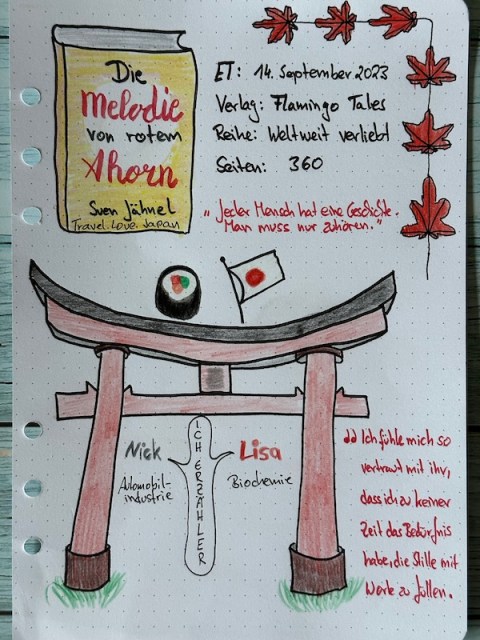 Die
Melodie
von rotem
Ahorn
Sven Jähnel
Travel.Love.Japan
ET: 14. September 2023
Verlag: Flamingo Tales
Reihe: Weltweit verliebt
Seiten: 360
"Jeder Mensch hat eine Geschichte.
Man muss nur zuhören."
Nick
Automobil-
industrie
ICH ERZÄHLER
Lisa
Biochemie
"Ich fühle mich so
vertraut mit ihr,
dass ich zu keiner
Zeit das Bedürfnis
habe, die Stille mit
Worte zu füllen.